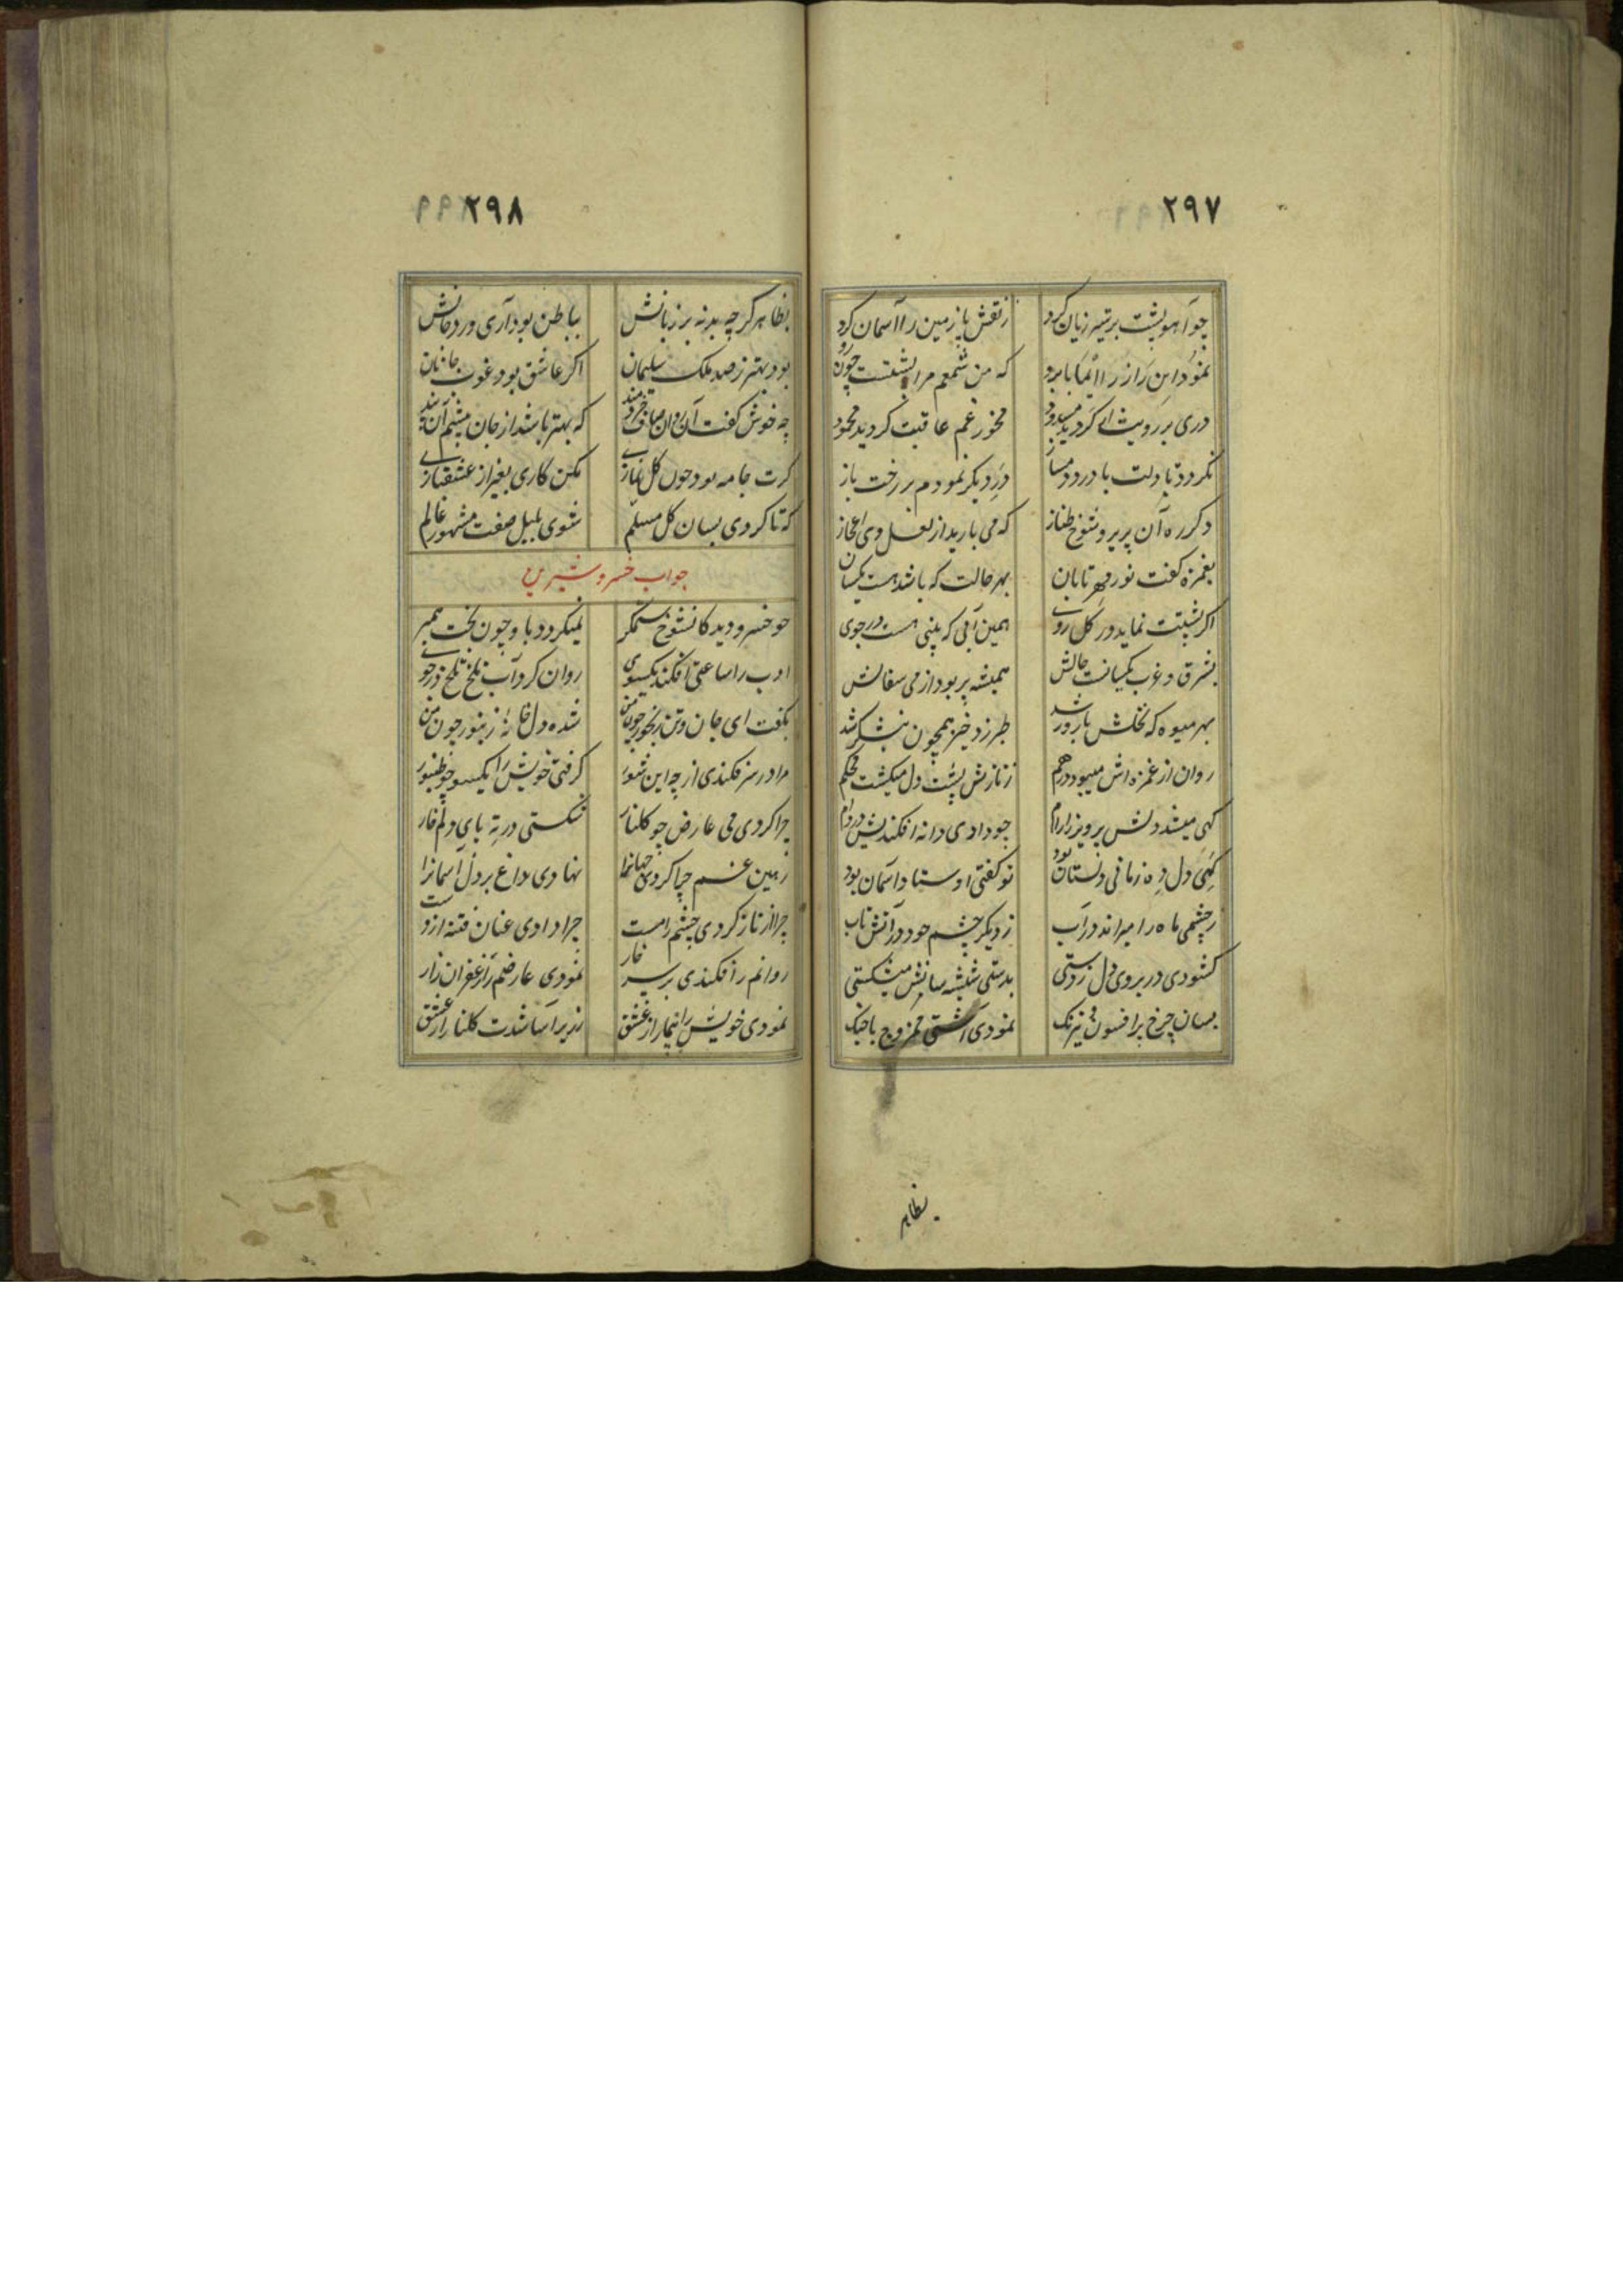 ۲۹۷
چو آهو پشت بر تیر زیان کرد ز نقش پا زمین را آسمان کرد
نمود این راز را ایما بابرو که من شمعم مرا پشتست چون رو
دری بر رویت ار گردید مسدود مخور غم عاقبت گردید محمود
نگردد تا دلت با درد دمساز در دیگر نمودم بر رخت باز
دگر ره آن پریرو شوخ طناز که می بارید از لعل وی اعجاز
بغمزه گفت نور مهر تابان بهر حالت که باشد هست یکسان
اگر پشتت نماید ور گل روی همین آبی که بینی هست در جوی
بشرق و غرب یکسانست حالش همیشه پر بود از می سفالش
بهر میوه که نخلش بارور شد طبرزد خیز همچون نیشکر شد
روان از غمزه اش میبود درهم ز نازش پشت دل میگشت محکم
گهی میشد دلش پرویز را رام چو دادی دانه افکندیش در دام
گهی دل ده زمانی دلستان بود تو گفتی اوستاد آسمان بود
ز چشمی ماه را میراند در آب ز دیگر چشم خود در آتش ناب
گشودی در بروی دل ز دستی بدستی شیشه سانش میشکستی
بسان چرخ پر افسون و نیرنگ نمودی آشتی ممزوج با جنگ
بظاهر
۲۹۸
بظاهر گرچه بد نه بر زبانش بباطن بود آری ورد جانش
بود بهتر ز صد ملک سلیمان اگر عاشق بود غوث
چه خوش گفت آن روان صاف خردمند که بهتر باشد از جان پیشم آن بند
گرت جامه بود چون گل نمازی مکن کاری بغیر از عشقبازی
که تا گردی بسان گل مسلم شوی بلبل صفت مشهور عالم
جواب خسرو شیرین
چو خسرو دید کانشوخ ستمگر نمیگردد باو چون بخت همبر
ادب را ساعتی افکند یکسوی روان کرد آب تلخ تلخ در جوی
بگفت ای جان و تن رنجور چون من شده دل خانهٔ زنبور چون من
مرا در سر فکندی از چه این شور گرفتی خویش را یکسو چو طنبور
چرا کردی می عارض چو گلنار شکستی در ته پای دلم خار
زمین غم چرا کردی جهانرا نهادی داغ بر دل آسمانرا
چرا از ناز کردی چشم را مست چرا دادی عنان فتنه از دست
روانم را فکندی بر سر خار نمودی عارضم را زعفران زار
نمودی خویش را بیمار از عشق زریر آسا شدت گلنار از عشق